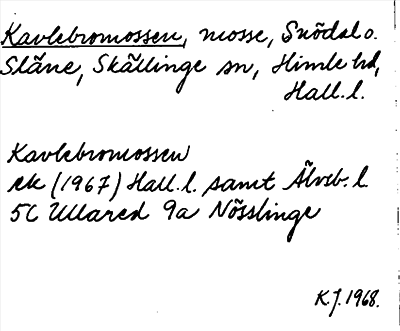 Kavlebromossen, mosse, Snödal o.
Släne, Skällinge sn, Himle hd,
Hall. l.
Kavlebromossen
ek (1967) Hall. l. samt Älvsb. l
5C Ullared 9a Nösslinge
K.J. 1968.